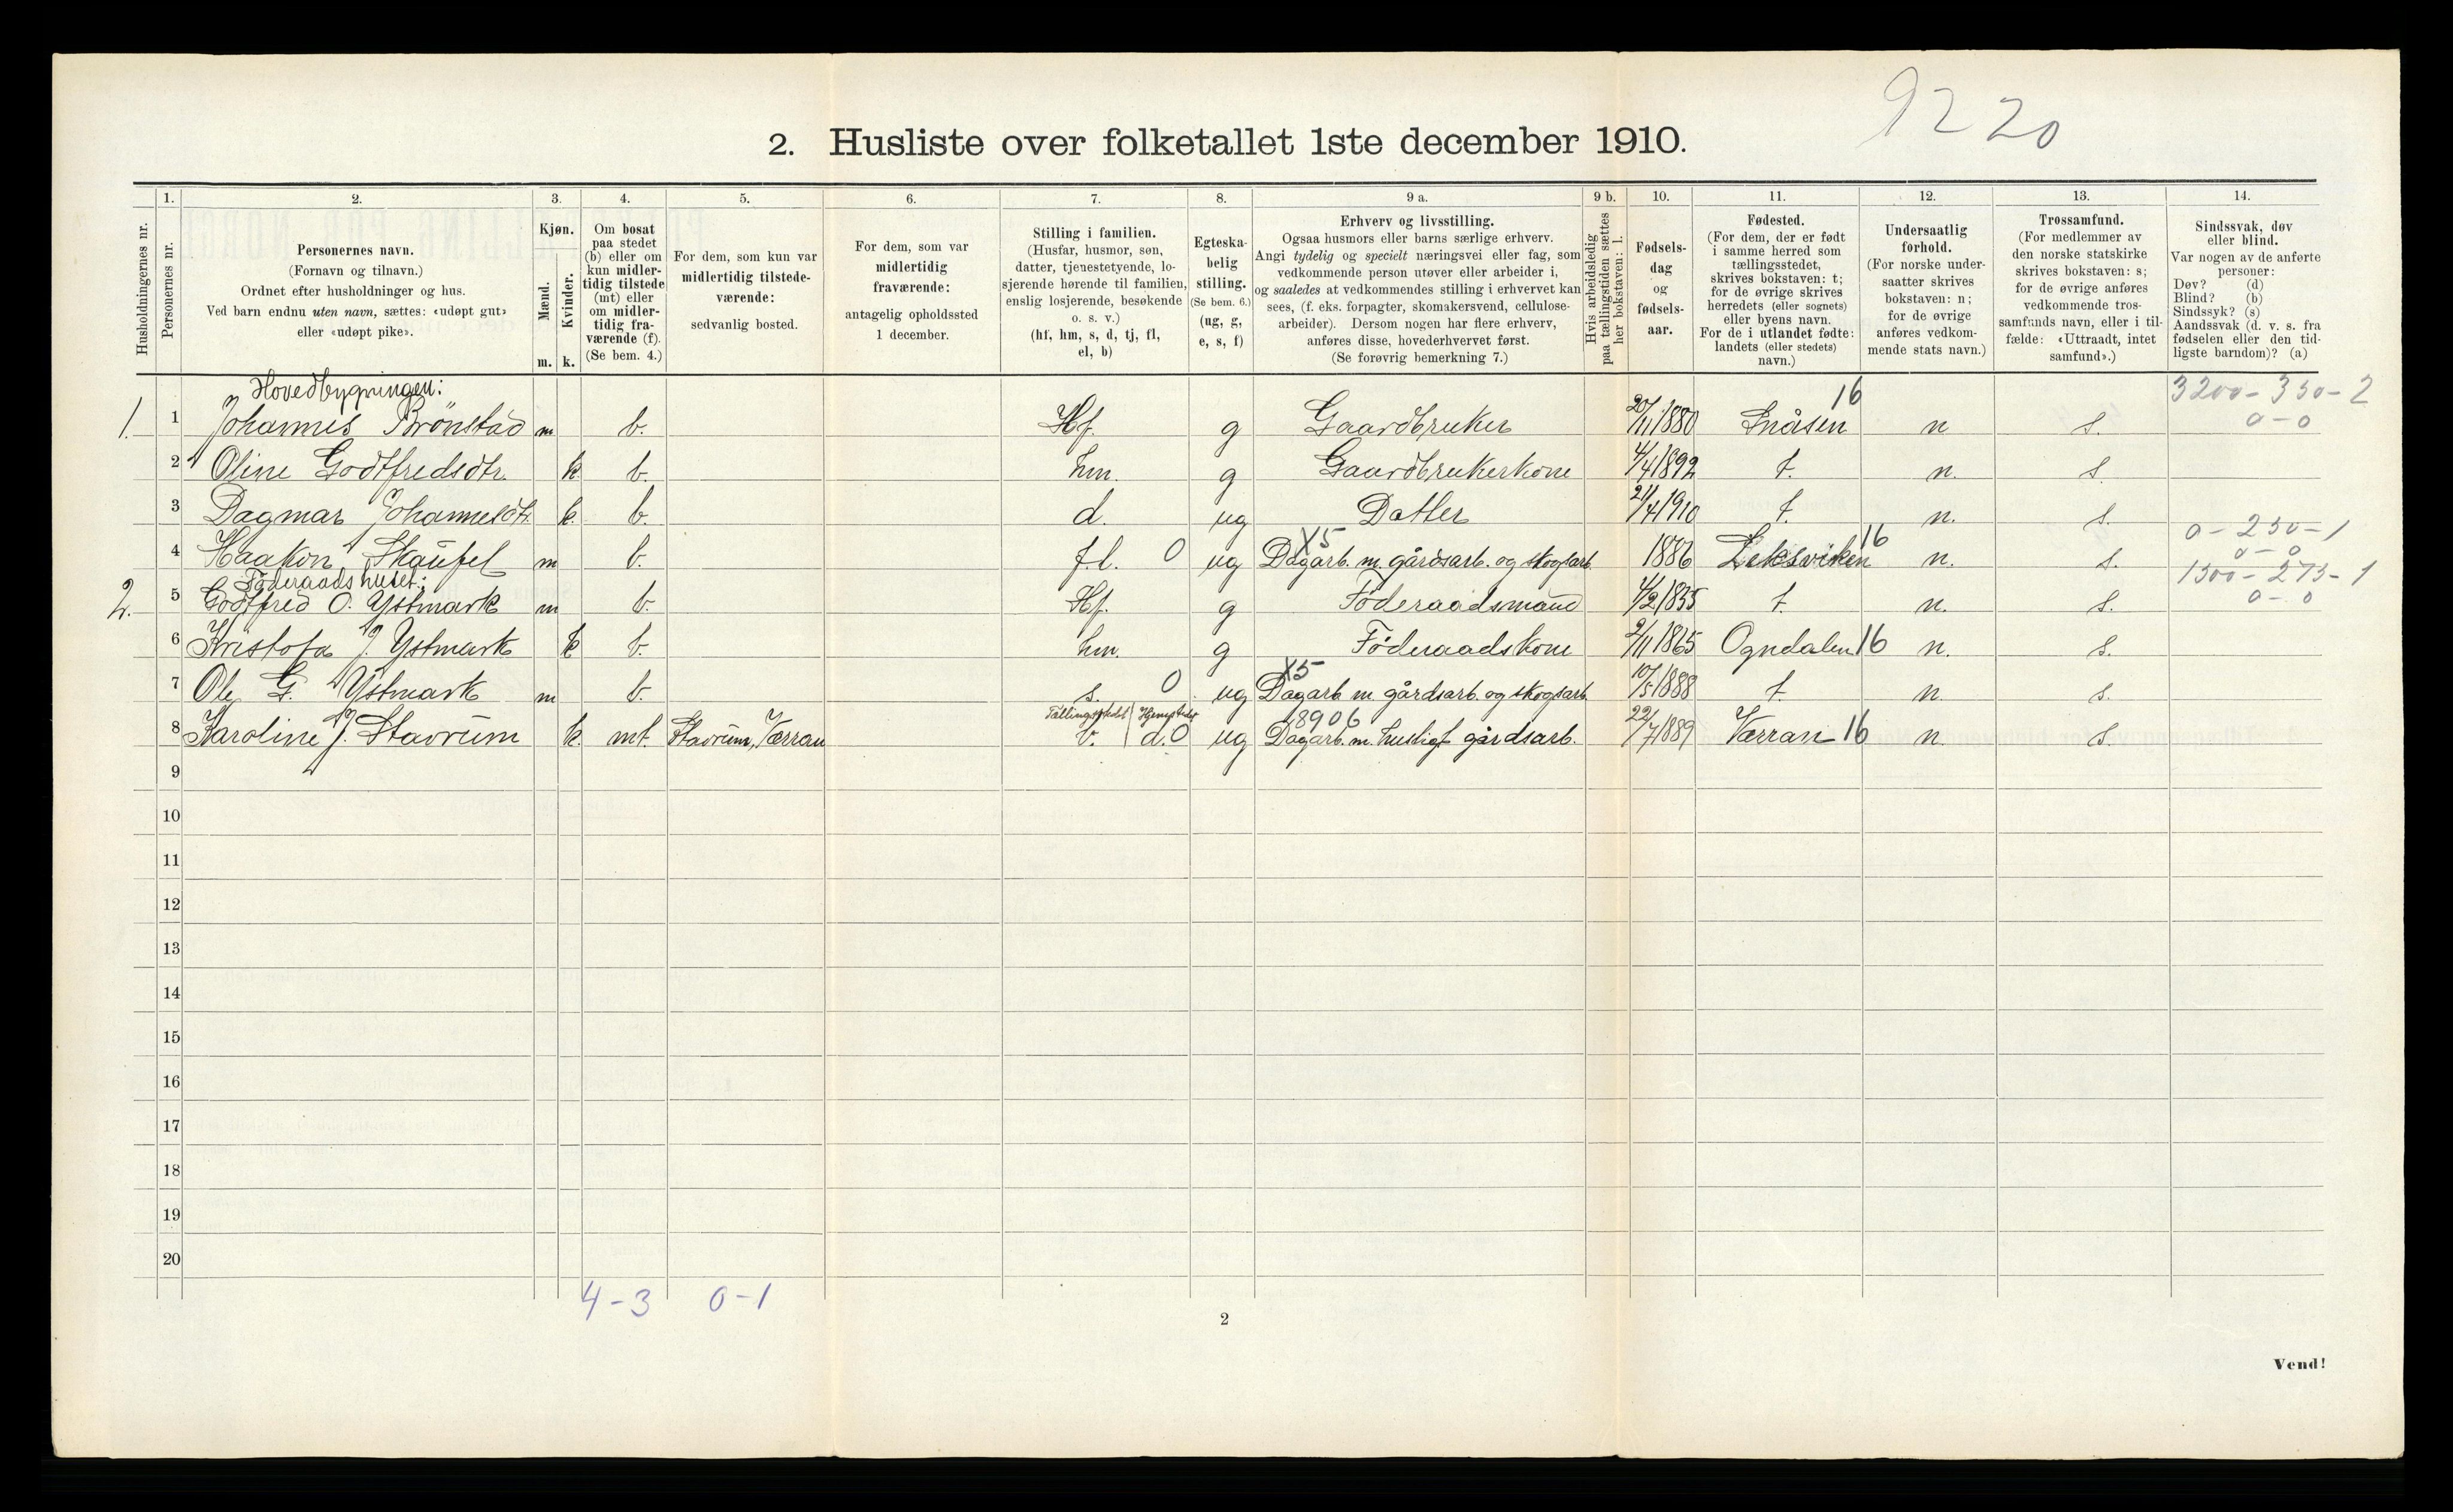 9220
2. Husliste over folketallet 1ste december 1910.
Husholdningernes nr.
1. Personernes nr.
2. Personernes navn.
(Fornavn og tilnavn.)
Ordnet efter husholdninger og hus.
Ved barn endnu uten navn, sættes: «udøpt gut»
eller «udøpt pike».
3. Kjøn.
Mænd. m.
Kvinder. k.
4. Om bosat
paa stedet
(b) eller om
kun midler-
tidig tilstede
(mt) eller
om midler-
tidig fra-
værende (f).
(Se bem. 4.)
5. For dem, som kun var
midlertidig tilstede-
værende:
sedvanlig bosted.
6. For dem, som var
midlertidig
fraværende:
antagelig opholdssted
1 december.
7. Stilling i familien.
(Husfar, husmor, søn,
datter, tjenestetyende, lo-
sjerende hørende til familien,
enslig losjerende, besøkende
o. s. v.)
(hf, hm, s, d, tj, fl,
el, b)
8. Egteska-
belig
stilling.
(Se bem. 6.)
(ug, g,
e, s, f)
9 a. Erhverv og livsstilling.
Ogsaa husmors eller barns særlige erhverv.
Angi tydelig og specielt næringsvei eller fag, som
vedkommende person utøver eller arbeider i,
og saaledes at vedkommendes stilling i erhvervet kan
sees, (f. eks. forpagter, skomakersvend, cellulose-
arbeider). Dersom nogen har flere erhverv,
anføres disse, hovederhvervet først.
(Se forøvrig bemerkning 7.)
9 b. Hvis arbeidsledig
paa tællingstiden sættes
her bokstaven: l.
10. Fødsels-
dag
og
fødsels-
aar.
11. Fødested.
(For dem, der er født
i samme herred som
tællingsstedet,
skrives bokstaven: t;
for de øvrige skrives
herredets (eller sognets)
eller byens navn.
For de i utlandet fødte:
landets (eller stedets)
navn.)
12. Undersaatlig
forhold.
(For norske under-
saatter skrives
bokstaven: n;
for de øvrige
anføres vedkom-
mende stats navn.)
13. Trossamfund.
(For medlemmer av
den norske statskirke
skrives bokstaven: s;
for de øvrige anføres
vedkommende tros-
samfunds navn, eller i til-
fælde: «Uttraadt, intet
samfund».)
14. Sindssvak, døv
eller blind.
Var nogen av de anførte
personer:
Døv? (d)
Blind? (b)
Sindssyk? (s)
Aandssvak (d. v. s. fra
fødselen eller den tid-
ligste barndom)? (a)
Hovedbygningen: 16 3200-350-2
1. 1 Johannes Brönstad m b. Hf. g Gaardbruker 20/11 1880 Snåsen n s. 0-0
2 Oline Godtfredsdtr. k. b. hm. g Gaardbrukerkone 4/4 1892 t. n. s.
3 Dagmar Johannesdtr. k. b. d. ug Datter 21/4 1910 t. n. s.
X5 16 0-250-1
4 Haakon Skaufel m b. f.l. 0 ug Dagarb. m. gårdsarb. og skogsarb. 1886 Leksviken n. s. 0-0
Föderaadshuset: 1500-275-1
2. 5 Godtfred O. Ystmark m b. Hf. g Föderaadsmand 4/2 1855 t. n. s. 0-0
6 Kristofa J. Ystmark k b. hm. g Föderaadskone 2/11 1865 Ogndalen 16 n. s.
X5
7 Ole G. Ystmark m b. s. 0 ug Dagarb m gårdsarb. og skogsarb. 10/5 1888 t. n. s.
Tællingsstedet Hjemstedet 8906
8 Karoline J. Stavrum k. mt. Stavrum, Værran b. d. 0 ug Dagarb. m. husligt gårdsarb. 22/7 1889 Værran 16 n. s.
9
10
11
12
13
14
15
16
17
18
19
20
4-3 0-1
2
Vend!